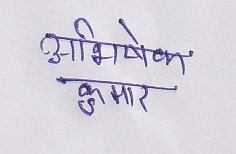 अभिषेक
कुमार